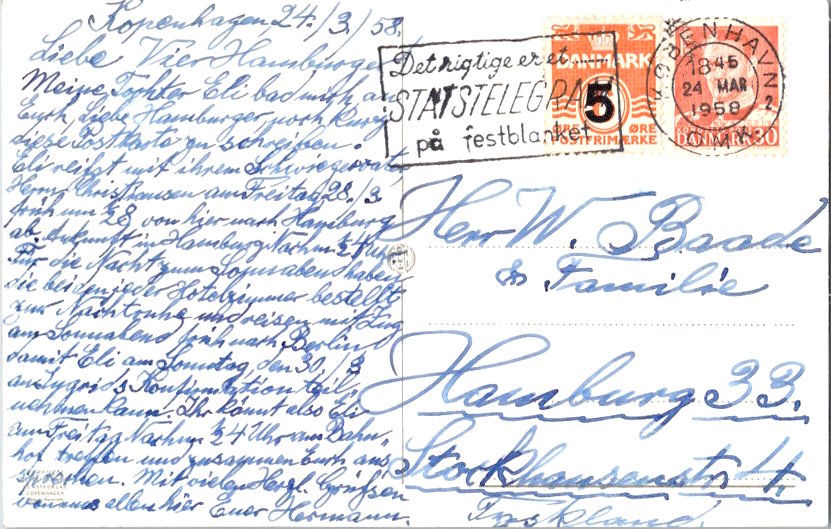 Kopenhagen 24./3./58.
Liebe Vier Hamburger!
Meine Tochter Eli bad mich an
Euch, Liebe Hamburger, noch kurz
diese Postkarte zu schreiben.
Eli reist mit ihrem Schwiegervater
Herrn Christhansen am Freitag 28./3
früh um 28 von hier nach Hamburg
ab. Ankunft in Hamburg Nachm ½4 Uhr
Für die Nacht zum Sonnabend haben
die beiden jeder Hotelzimmer bestellt
zur Nachtruhe und reisen mit Zug
am Sonnabend früh nach Berlin
damit Eli am Sonntag, den 30./3
an Ingrids Konfirmation teil,
nehmen kann. Ihr könnt also Eli
am Freitag Nachm ½4 Uhr am Bahn,
hof treffen und zusammen Euch aus
Mit vielen Herzl. Grüssen
von uns allen hier Euer Hermann.
Det rigtige er et
STATSTELEGRAM
på festblanket
DANMARK
5
ØRE
POSTFRIMÆRKE
KØBENHAVN
OMK.
1845
24 MAR
1958
2
DANMARK 30
Herr W. Baade
& Familie
Hamburg 33.
Stockhausenstr 4,
Tyskland.
KOPENHAGEN